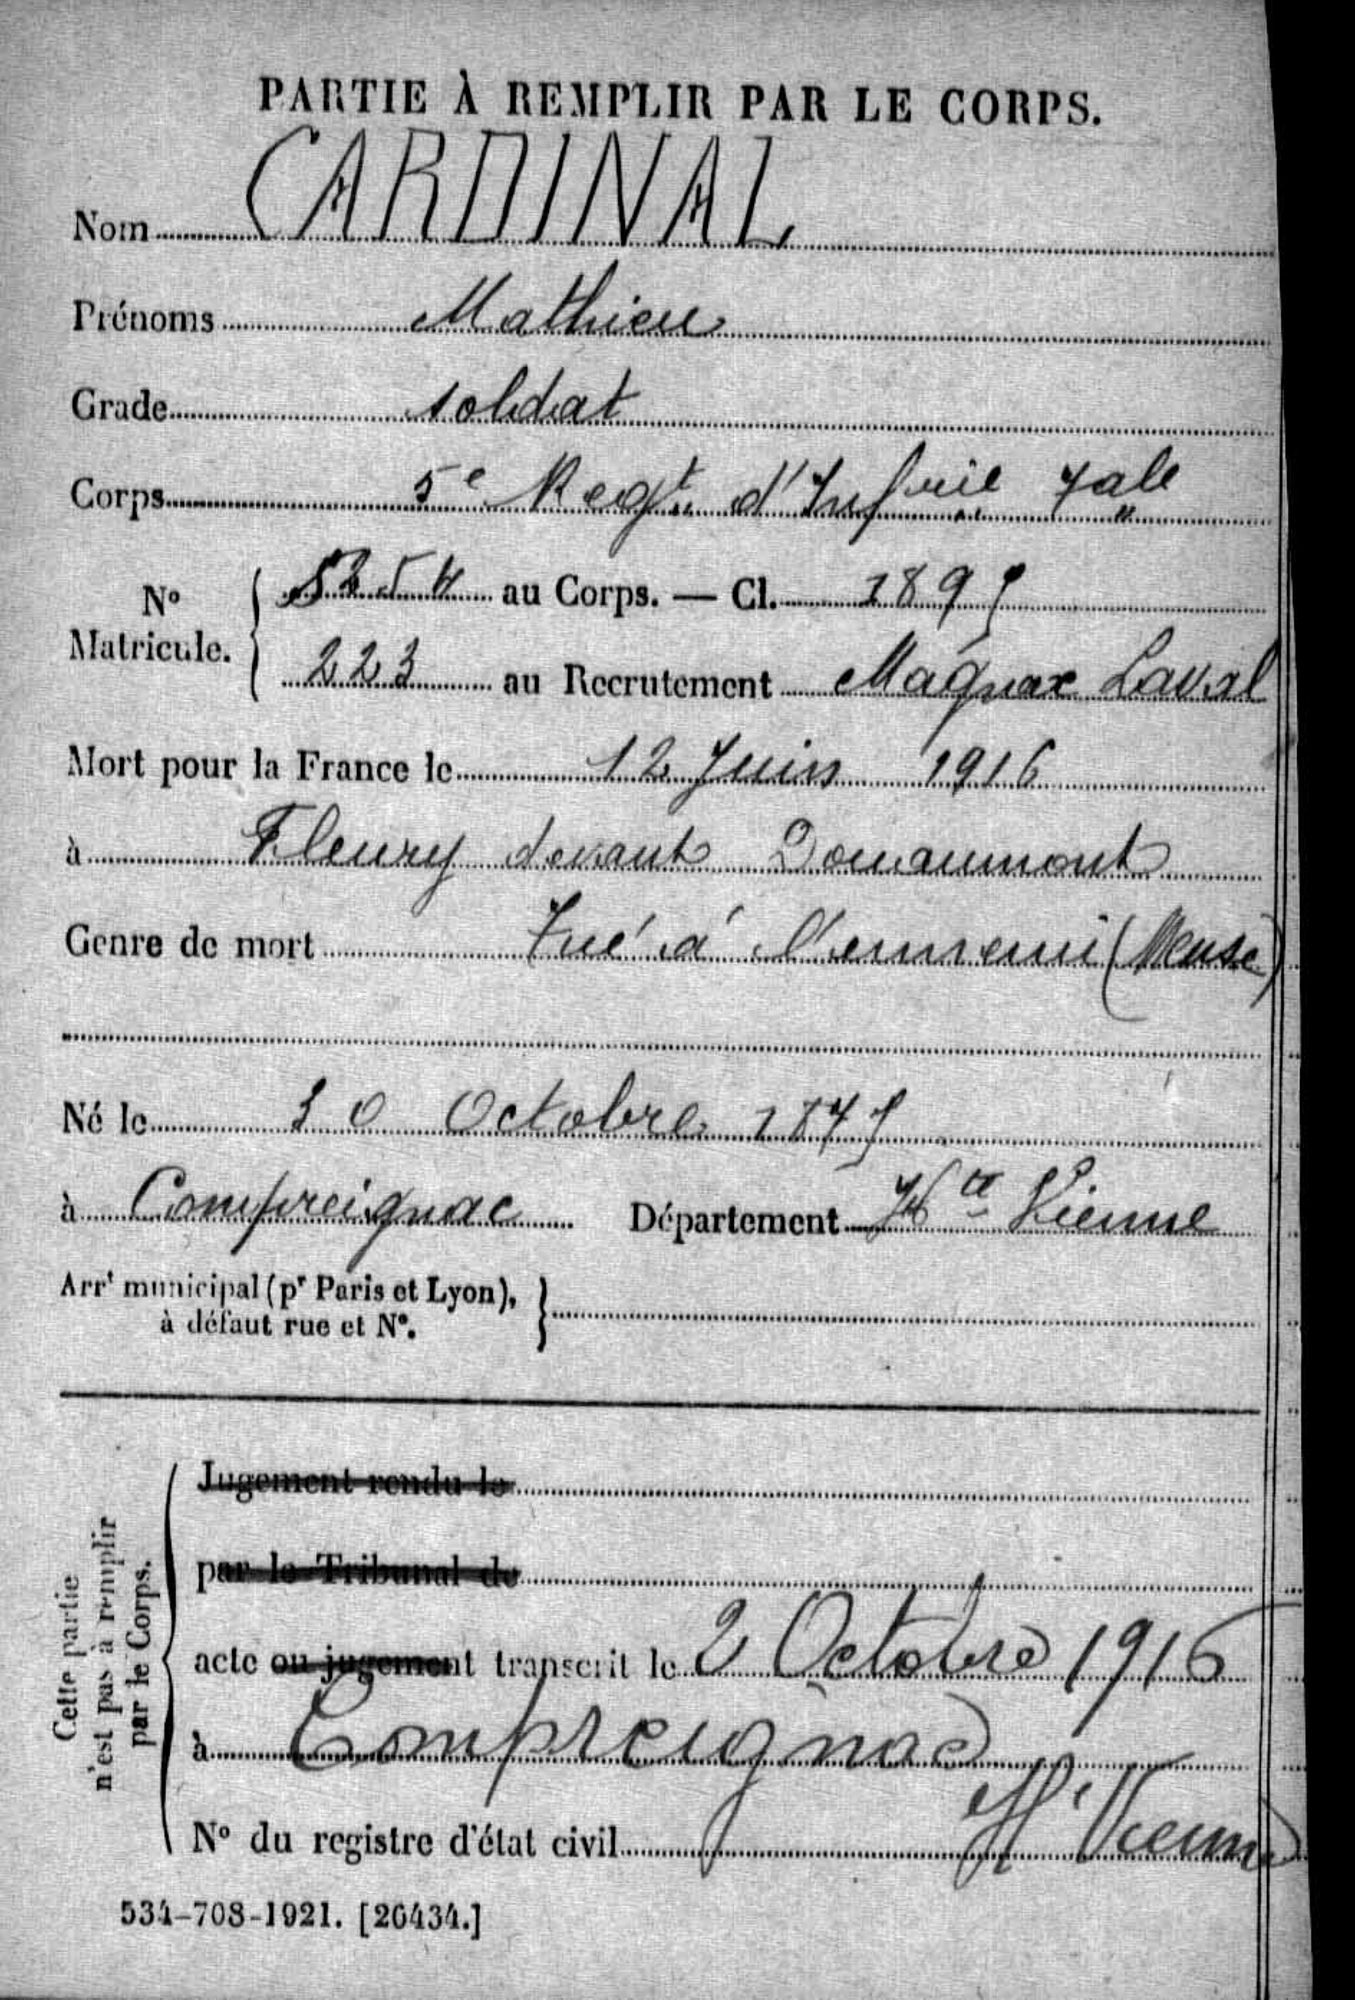 PARTIE À REMPLIR PAR LE CORPS.
Nom CARDINAL
Prénoms Mathieu
Grade soldat
Corps 5e Regt. d'Infrie 7ale
No Matricule. { 5254 au Corps. — Cl. 1895
223 au Recrutement Magnac Laval
Mort pour la France le 12 Juin 1916
à Fleury devant Douaumont
Genre de mort Tué à l'ennemi (Meuse)
Né le 30 Octobre 1875
à Compreignac Département Hte Vienne
Arrt municipal (pr Paris et Lyon), }
à défaut rue et No.
Cette partie
n'est pas à remplir
par le Corps.
Jugement rendu le
par le Tribunal de
acte ou jugement transcrit le 2 Octobre 1916
à Compreignac
Hte Vienne
No du registre d'état civil
534-708-1921. [26434.]